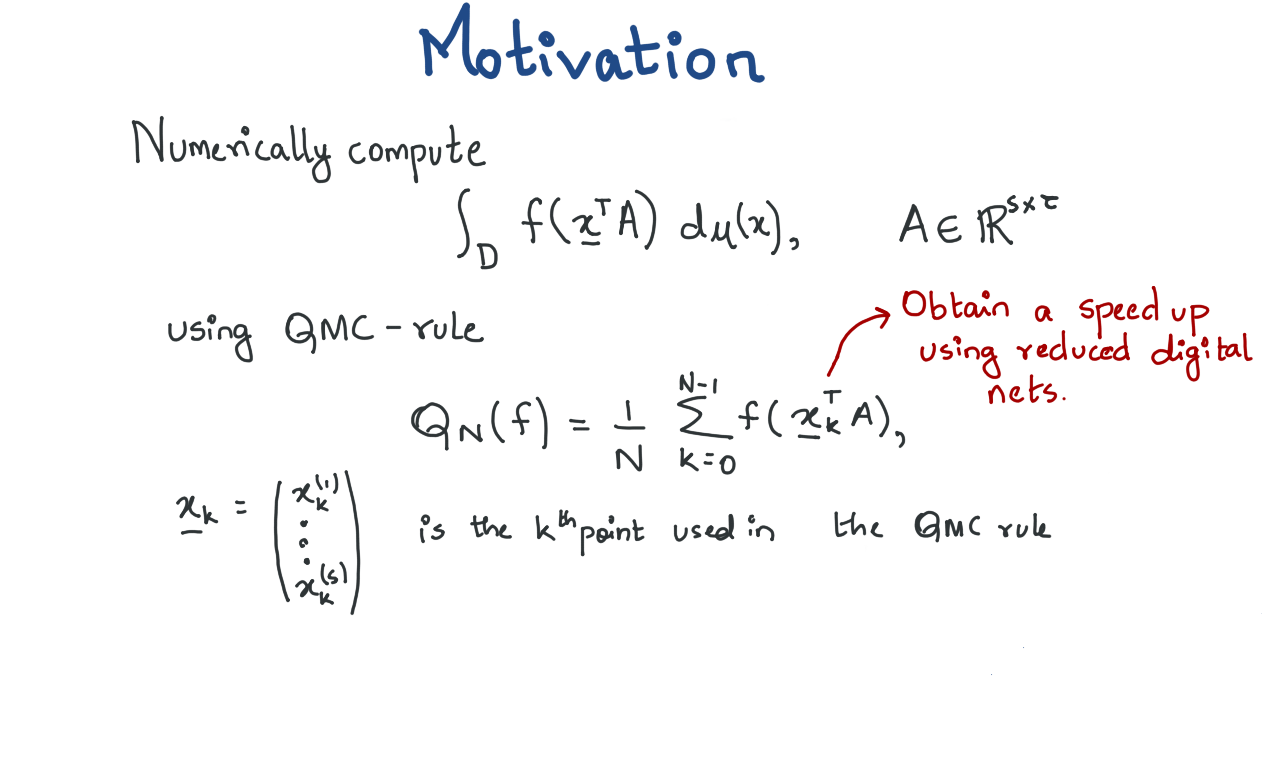 Motivation
Numerically compute
∫_D f(x̲ᵀA) dμ(x), A ∈ ℝ^{s×τ}
Obtain a speed up
using QMC-rule
using reduced digital
nets.
Q_N(f) = 1/N ∑_{k=0}^{N-1} f(x̲_kᵀ A),
x̲_k = (x_k^{(1)} ⋮ x_k^{(s)}) is the kᵗʰ point used in the QMC rule